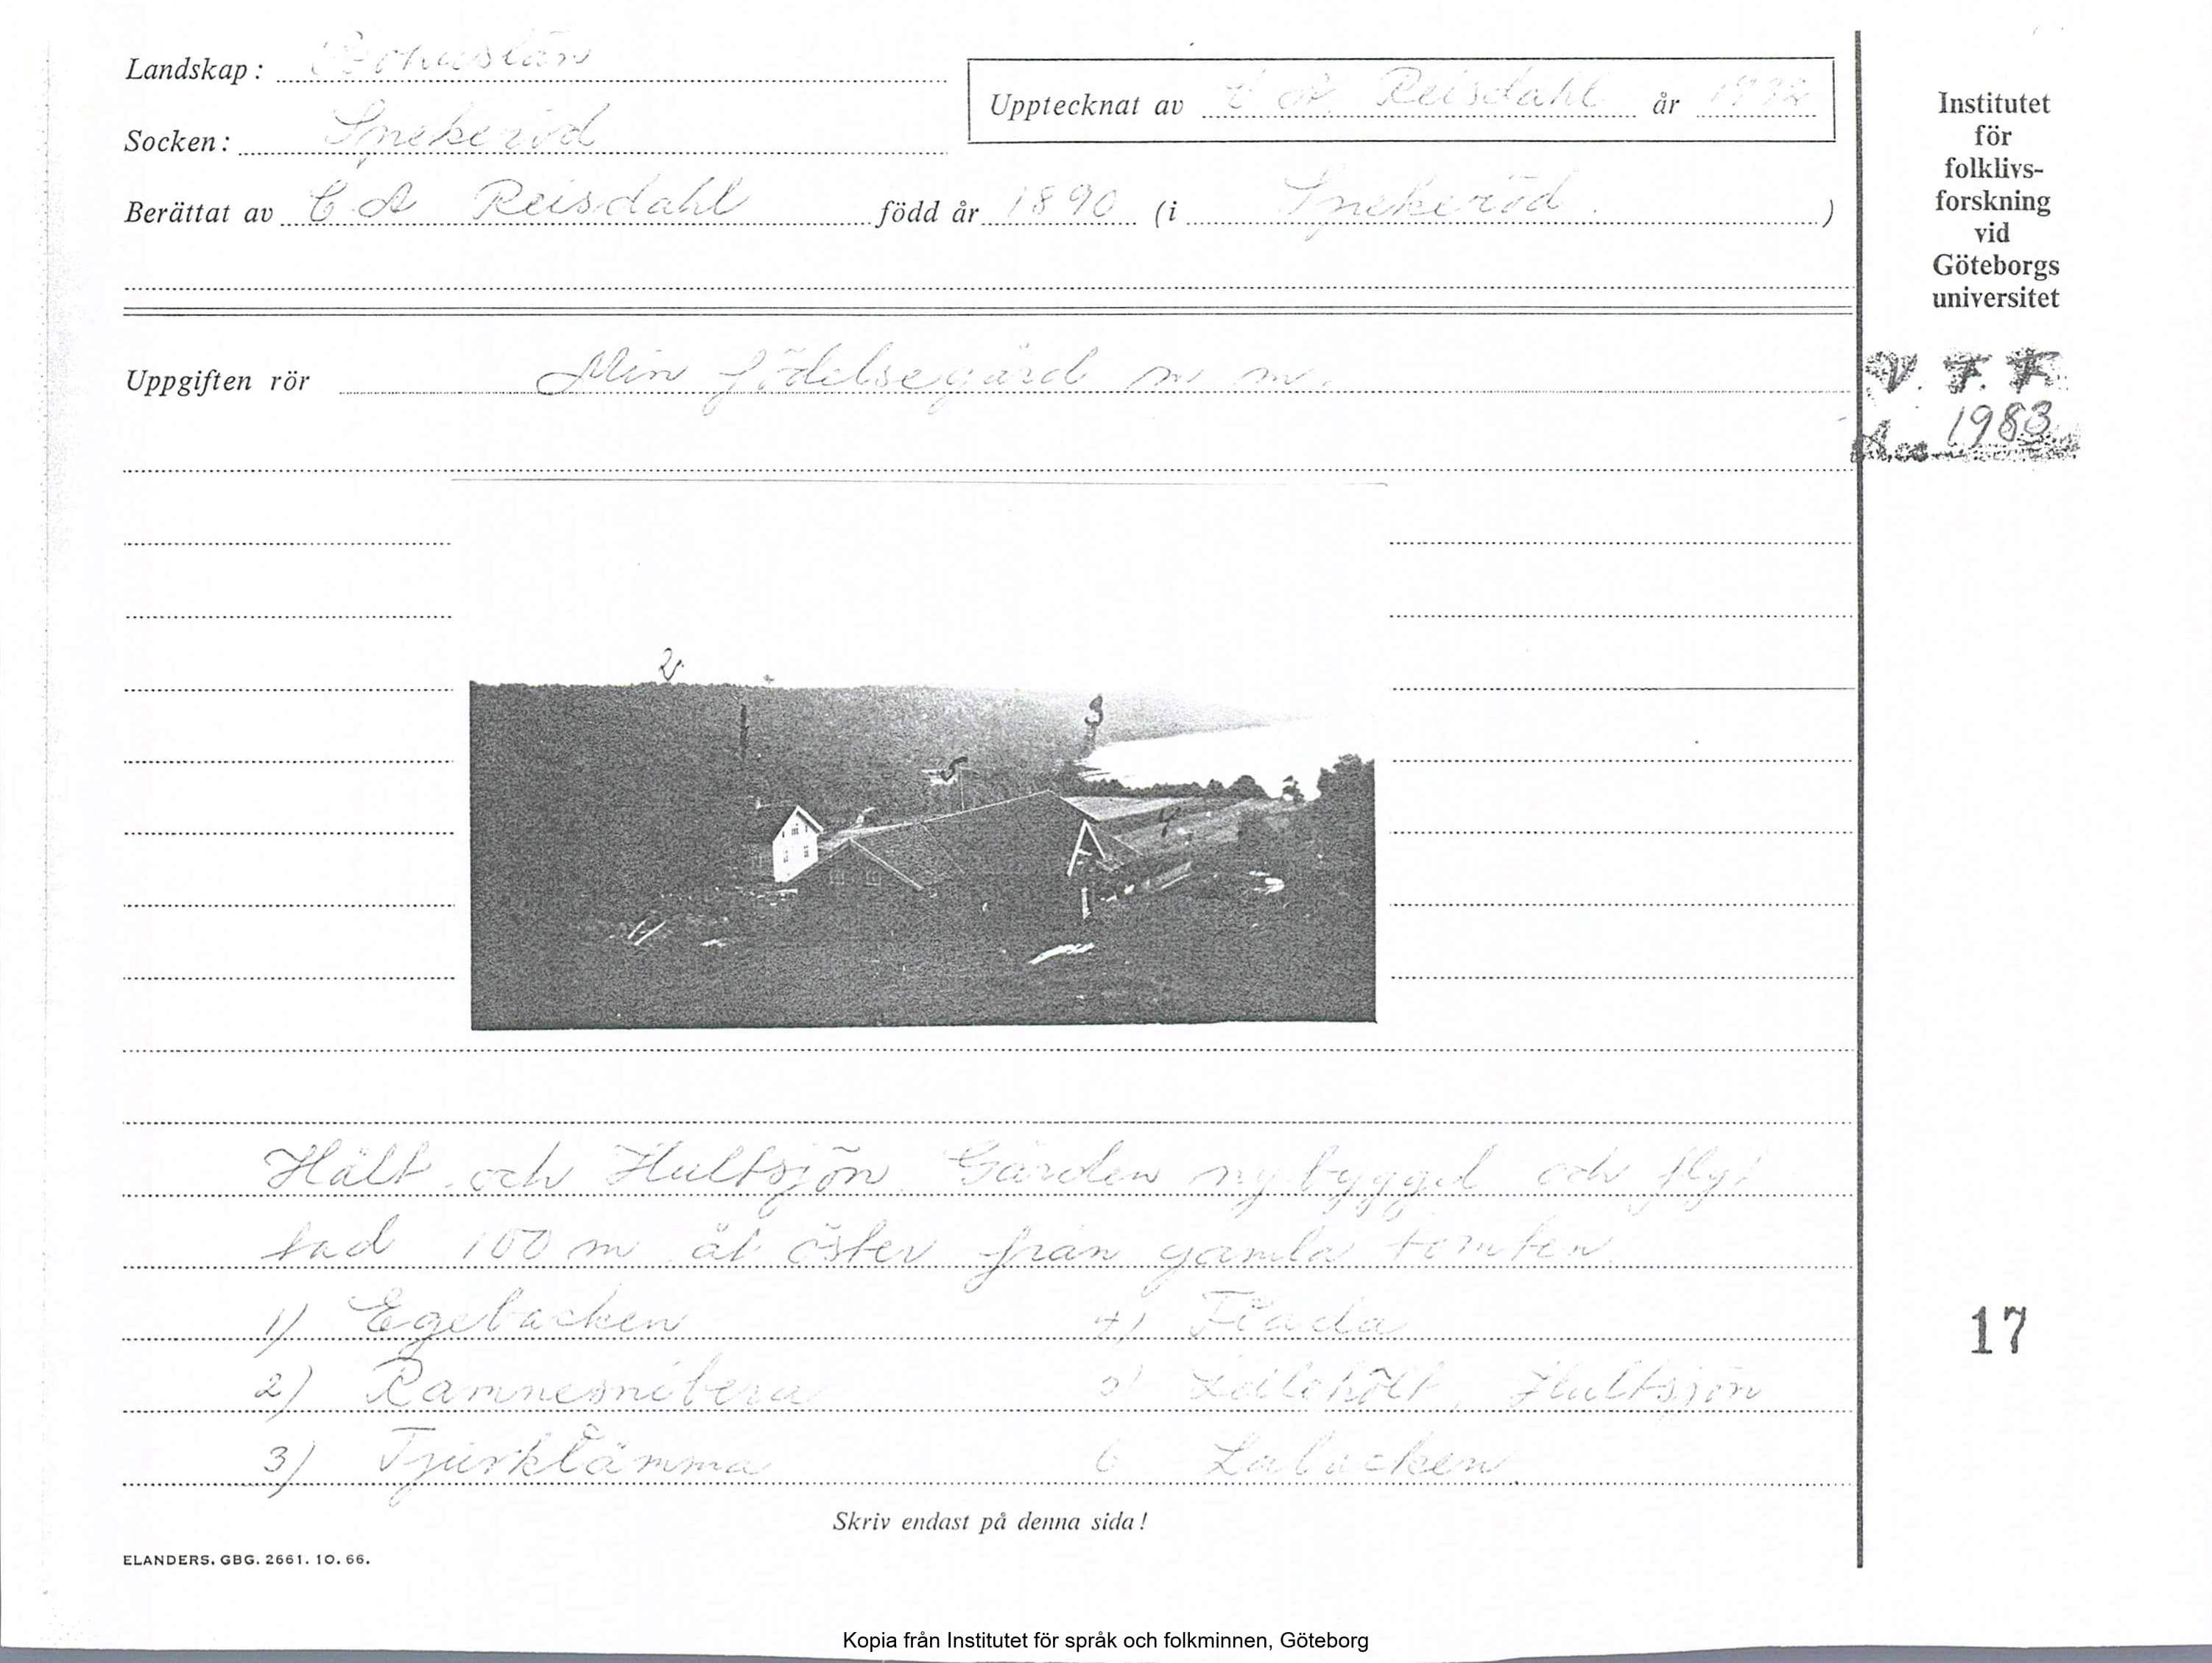 Landskap: Bohuslän
Upptecknat av C A Reisdahl år
Socken: Spekeröd
Berättat av C A Reisdahl född år 1890 (i Spekeröd.)
Institutet
för
folklivs-
forskning
vid
Göteborgs
universitet
Uppgiften rör Min födelsegård m m.
V. F. F.
1983
2
1
3
5
4
Hält och Hultsjön Gården nybyggd och flyt
tad 100 m åt öster från gamla tomten
1) Egebacken 4) Flada
2) Ramnesnibera 5) Hultsjön
3) Tjurklämma 6 Labacken
17
Skriv endast på denna sida!
ELANDERS. GBG. 2661. 10. 66.
Kopia från Institutet för språk och folkminnen, Göteborg